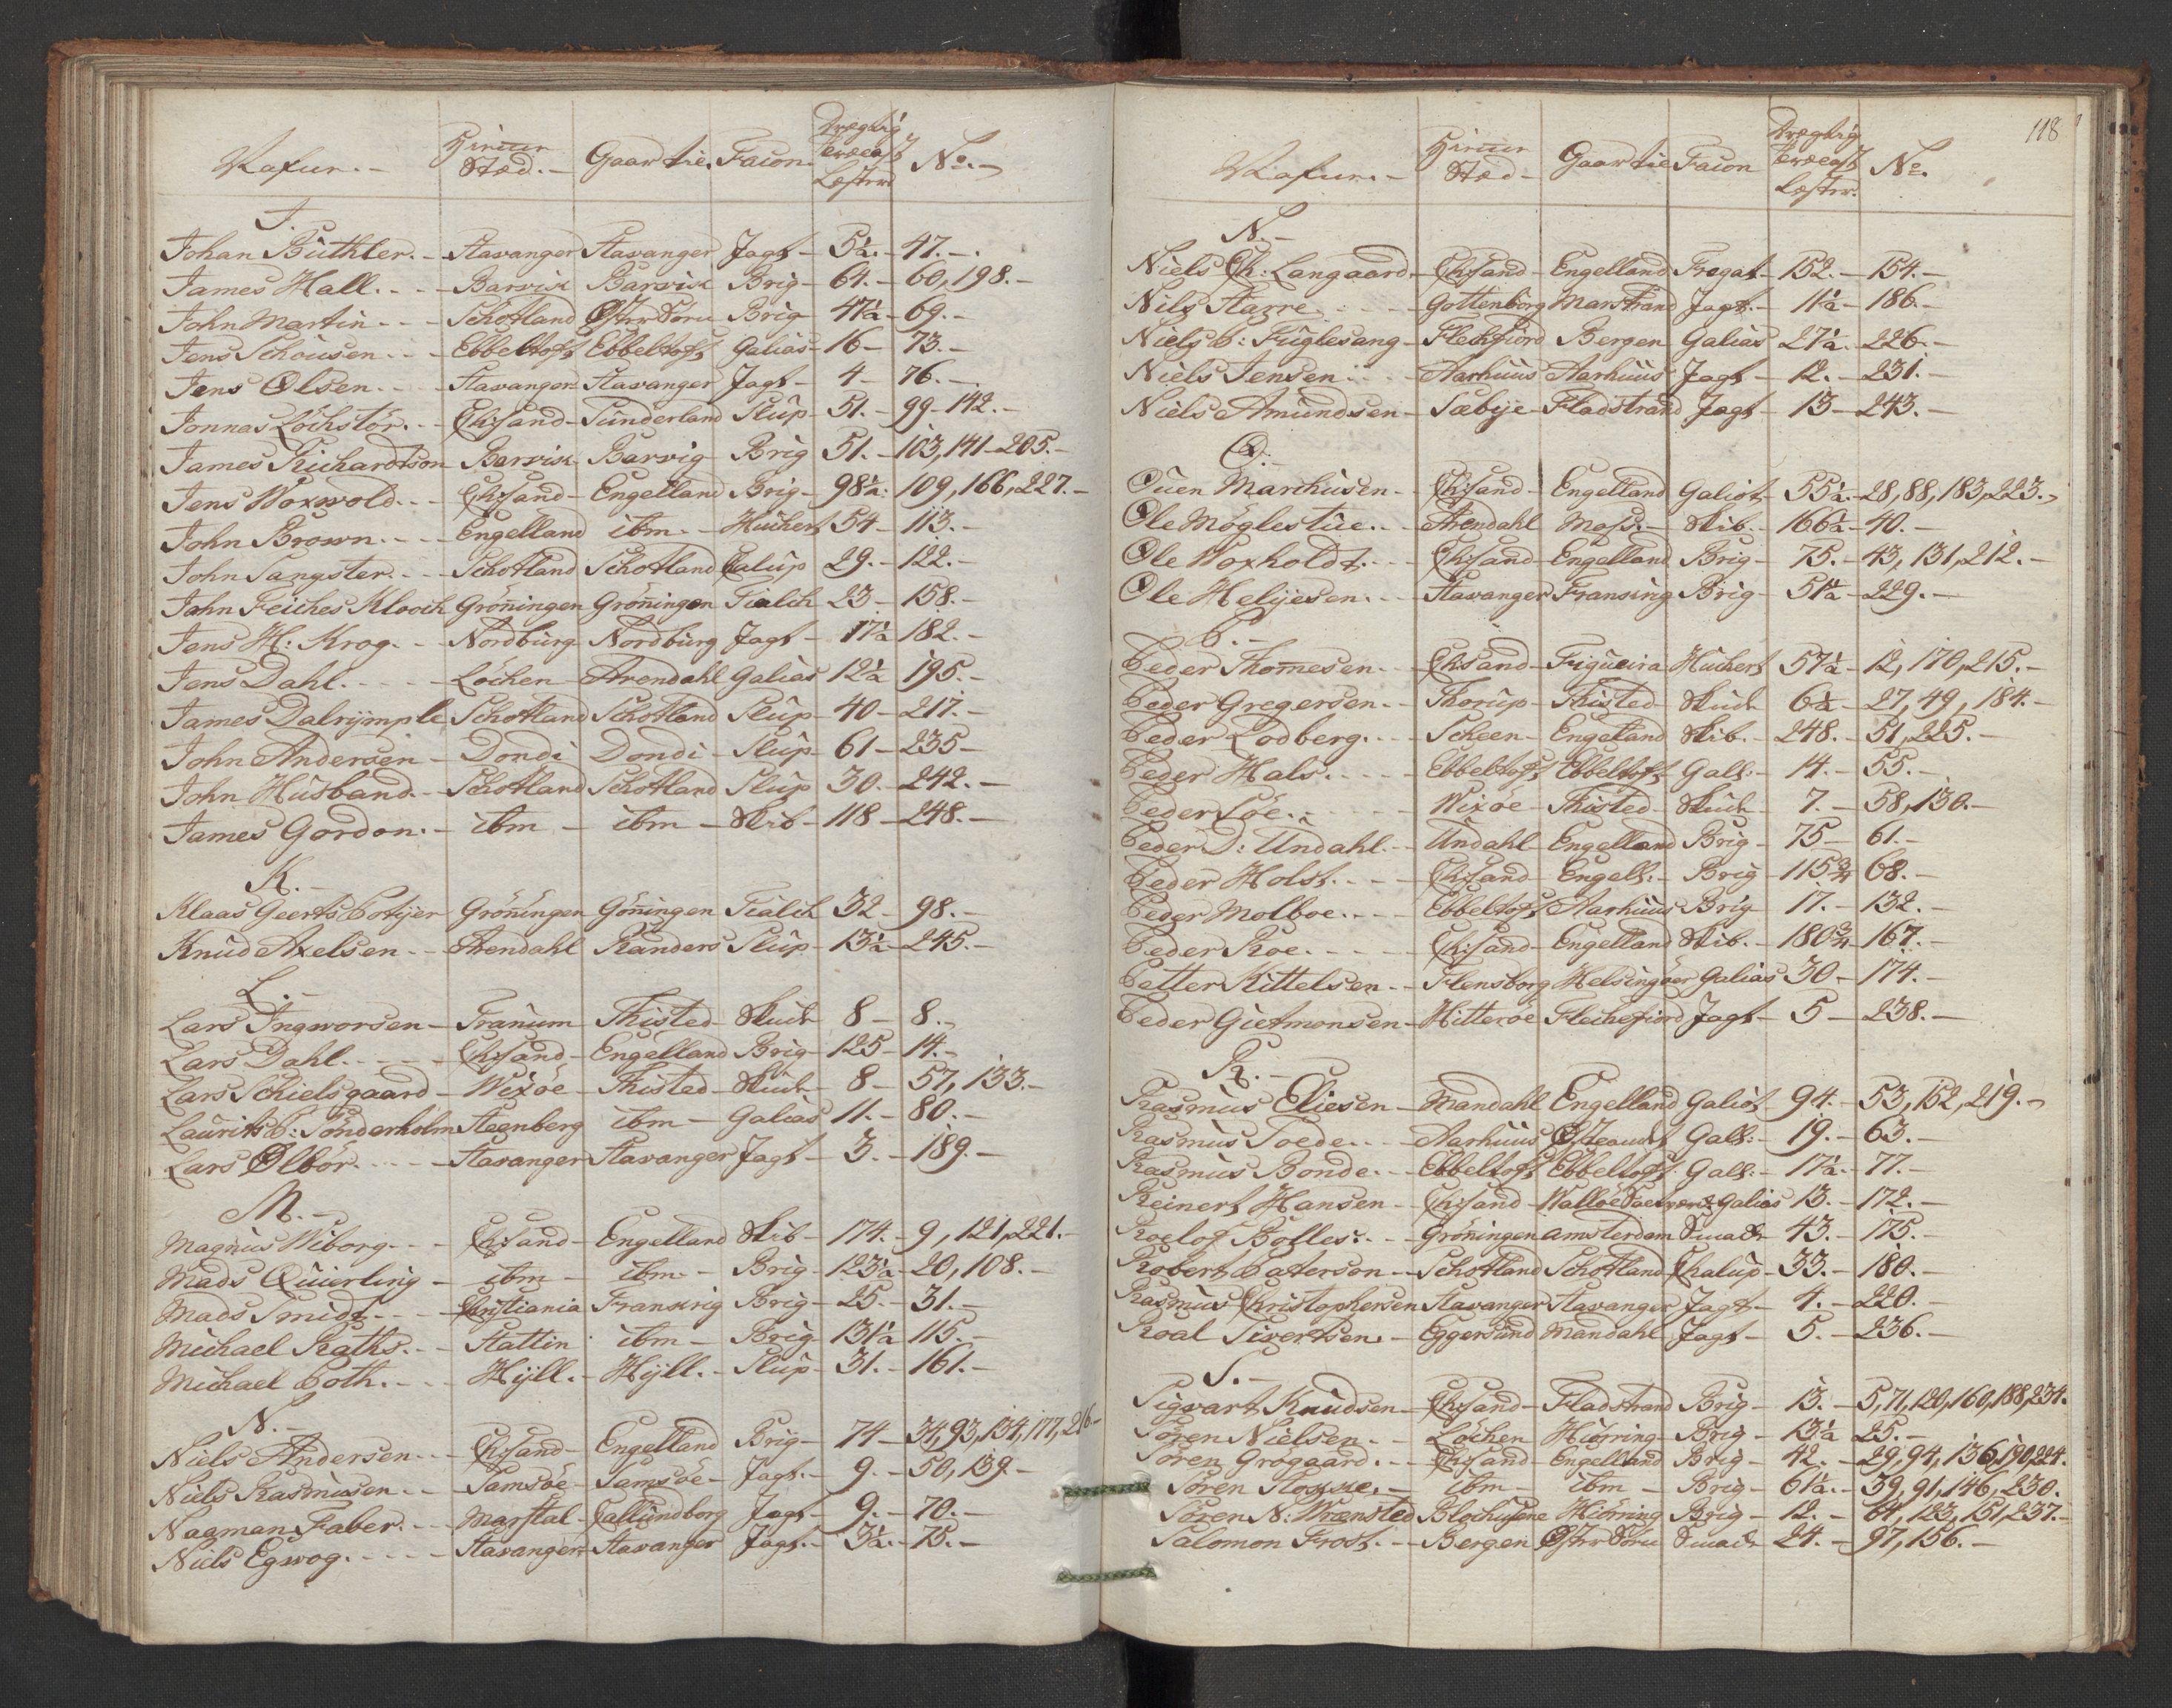 Nafn. - Hiem Stæd. - Gaar til. Facon. Drægtig Com̄: Læster No. -
J.
Johan Büthler. - Stavanger Stavanger Jagt - 5½. - 47. -
James Hall. - Barvik Barvik Brig - 64. - 60, 198. -
John Martin - Schotland Øster Söen Brig 47½ - 69. -
Jens Schousen. - Ebbeltoft Ebbeltoft Galias - 16 - 73. -
Jens Olsen. - Stavanger Stavanger Jagt - 4 - 76. -
Jonnas Löchstör. - Chrsand - Sunderland Slup - 51. - 99 - 142. -
James Richardtson Barvik Barvig - Brig 51. - 103, 141 - 205. -
Jens Woxwold. - Chrsand - Engelland Brig - 98½: 109, 166, 227. -
John Brown. - Engelland ibm - Huchert 54 - 113. -
John Sangster. - Schotland Schotland Chalup 29. - 122. -
Jahn Feiches Klooch Grönningen Grönningen Tialch 23 - 158. -
Jens H: Krog. - Nordburg Nordburg Jagt - 17½ 182. -
Jens Dahl. - Löchen - Arendahl Galias 12½ 195. -
James Dalrijmple Schotland Schotland Slup - 40 - 217. -
John Andersen - Dondi Dondi - Slup - 61 - 235 -
John Husband. - Schotland Schotland Slup 30. - 242. -
James Gordon. - ibm - ibm - Skib - 118 - 248. -
K. -
Klaas Geerts Potijer Grönningen Gönningen Tialch 32 - 98. -
Knud Axelsen. - Arendahl Randers Slup - 13½ - 245. -
L. -
Lars Ingworsen - Tranum Thisted Skude 8 - 8. -
Lars Dahl. - Chrsand - Engelland Brig - 125 - 14. -
Lars Schielsgaard - Wixöe - Thisted Skude - 8 - 57, 133. -
Laurits P: Sönderholm Steenberg ibm - Galias 11. - 80. -
Lars Ølbör. - Stavanger Stavanger Jagt - 3. - 189. -
M. -
Magnus Wiborg. - Chrsand - Engelland Skib - 174. - 9, 121, 221. -
Mads Quierling - ibm - ibm - Brig - 123½ - 20, 108. -
Mads Smidt. - Christiania Frankrig Brig - 25. - 31. -
Michael Raths. - Stattin ibm - Brig 131½ 115. -
Michael Poth. - Hijll. - Hijll. - Slup - 31. - 161. -
N. -
Niels Andersen. - Chrsand - Engelland Brig - 74 - 34, 93, 134, 177, 216 -
Niels Rasmusen. - Samsöe - Samsöe - Jagt. - 9. - 50, 139. -
Naaman Faber. - Marstal - Callundborg Jagt - 9. - 70. -
Niels Egwog. - Stavanger Stavanger Jagt. - 3½. - 75. -
118
Nafn. - Hiem Stæd - Gaar til Facon Drægtig Com̄: Læster. No.
N. -
Niels Ch: Langaard - Chrsand - Engelland Fregat - 152. - 154. -
Nils Starre - Gottenborg Marstrand Jagt. - 11½ - 186. -
Niels P: Fuglesang - Flechfiord Bergen Galias 27½ - 226. -
Niels Jensen - Aarhuus Aarhuus Jagt - 12. - 231. -
Niels Amundsen - Sæbije - Fladstrand Jagt - 13 - 243. -
O. -
Ouen Marchusen - Chrsand - Engelland Galiot - 55½. - 28, 88, 183, 223. -
Ole Möglestue. - Arendahl Moss. - Skib. - 166½ - 40. -
Ole Woxholdt. - Chrsand - Engelland Brig - 75. - 43, 131, 212. -
Ole Helijesen. - Stavanger Fransing Brig - 51½ - 229. -
P. -
Peder Thom̄esen. - Chrsand - Figueira Huchert 57½ - 12, 170, 215. -
Peder Gregersen. - Thorup - Thisted - Skude 6½ - 27, 49, 184. -
Peder Lodberg. - Scheen - Engelland Skib. - 248. - 51, 225. -
Peder Hals. - Ebbeltoft Ebbeltoft Gall: - 14. - 55. -
Peder Löe. - Wixöe - Thisted - Skude 7. - 58, 130. -
Peder D: Undahl. - Undahl - Engelland Brig - 75 - 61. -
Peder Holst. - Chrsand - Engell: - Brig - 115¾ 68. -
Peder Molboe. - Ebbeltoft Aarhuus Brig 17. - 132. -
Peder Roe. - Chrsand - Engelland Skib. - 180¾ - 167. -
Petter Kittelsen. - Flensborg Helsingöer Galias 30 - 174. -
Peder Gietmonsen - Hitteröe Flechefiord Jagt - 5 - 238. -
R. -
Rasmus Eliesen - Mandahl Engelland Galiot 94. - 53, 152, 219. -
Rasmus Soede. - Aarhuus Gall: - 19. - 63. -
Rasmus Bonde. - Ebbeltoft Ebbeltoft Gall: - 17½. - 77. -
Reinert Hansen - Chrsand - Walløe Saltværk Galias 13. - 172. -
Roelof Bolles: - Gröningen Amsterdam Smack 43. - 175. -
Robert Paterson - Schotland Schotland Chalup - 33. - 180. -
Rasmus Christophersen Stavanger Stavanger Jagt - 4. - 220. -
Roal Sivertsen. - Eggersund Mandahl Jagt - 5. - 236. -
S. -
Sigvart Knudsen - Chrsand - Fladstrand Brig - 13. - 5, 71, 120, 160, 188, 234.
Sören Nielsen. - Löchen Hiörring - Brig - 13½ 25. -
Sören Grogaard. - Chrsand - Engelland Brig - 42. - 29, 94, 136, 190, 224.
Sören Stokke. - ibm - ibm - Brig - 61½. - 39, 91, 146, 230.
Sören N: Wrænsted Blochusene Hiörring Brig - 12. - 64, 123, 151, 237. -
Salomon Frost. - Bergen Øster Söen Smack 24. - 97, 156. -